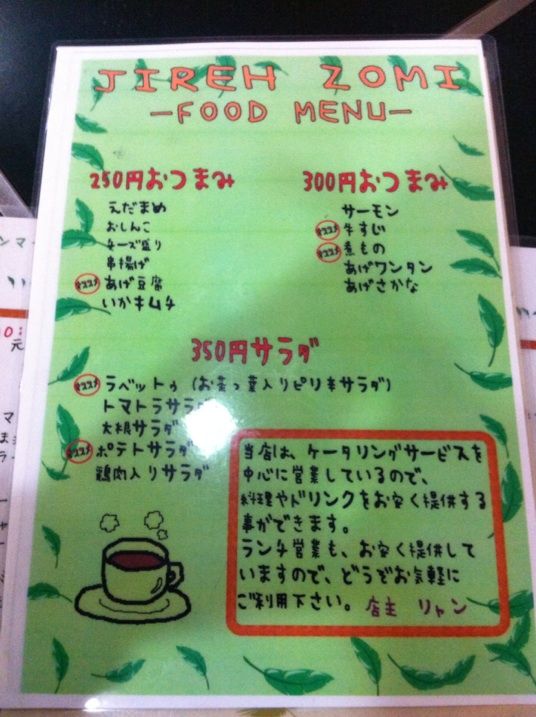 JIREH ZOMI
-FOOD MENU-
250円おつまみ
えだまめ
おしんこ
チーズ盛り
串揚げ
オススメ あげ豆腐
いかキムチ
300円おつまみ
サーモン
オススメ 牛すじ
オススメ 煮もの
あげワンタン
あげさかな
350円サラダ
オススメ ラペットゥ (お茶っ葉入りピリ辛サラダ)
トマトサラダ
大根サラダ
オススメ ポテトサラダ
鶏肉入りサラダ
当店は、ケータリングサービスを
中心に営業しているので、
料理やドリンクをお安く提供する
事ができます。
ランチ営業も、お安く提供して
いますので、どうぞお気軽に
ご利用下さい。 店主 リャン